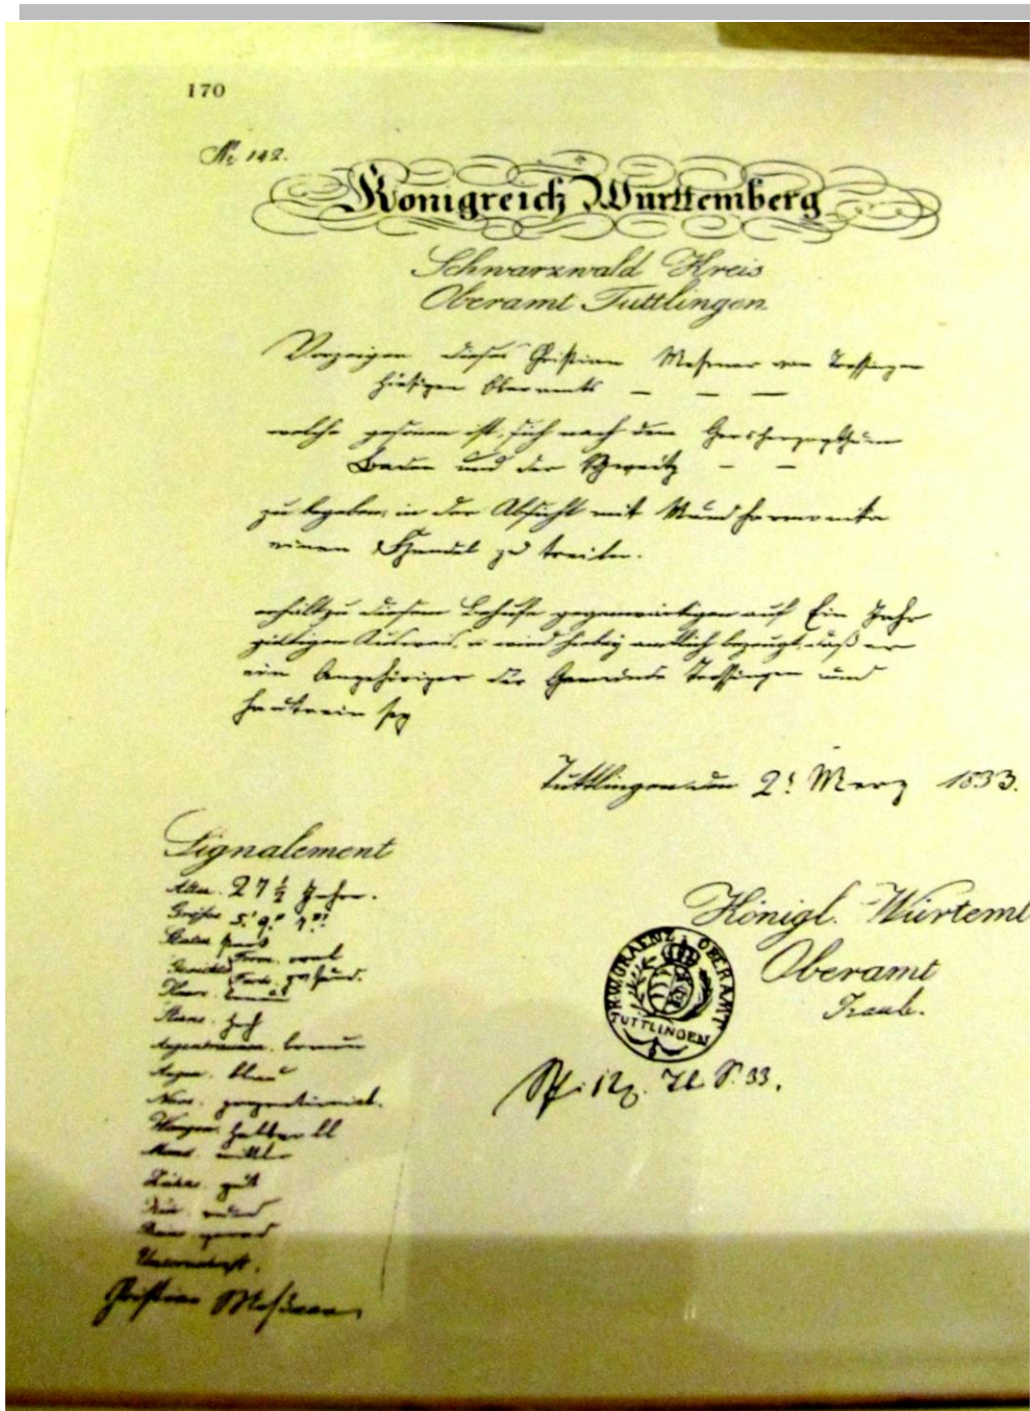 170
No 142.
Königreich Württemberg
Schwarzwald Kreis
Oberamt Tuttlingen
Vorzeigen dieses Christian Meßner von Trossingen
hiesigen Oberamts — — —
welche gesonnen ist, sich nach dem Grosherzogthum
Baden und der Schweitz — —
zu begeben, in der Absicht mit Mundharmonika
einen Handel zu treiben.
erhält zu diesem Behufe gegenwärtigen auf Ein Jahr
giltigen Ausweis, u wird hiebey amtlich bezeugt, daß er
ein Angehöriger der Gemeinde Trossingen und
sey
Tuttlingen den 2t Merz 1833.
Signalement
Alter. 27 1/2 Jahr.
Größe 5.' 9."
Statur
Gesichts Form. oval
Farb. gesund.
Haare.
Stirne. hoch
Augenbraunen. braun
Augen. blau
Nase. proportionirt.
Wangen.
Mund. mittler
Zähne. gut
Kinn. rund
Beine gerad
Unterschrift.
Christian Meßner
Königl. Würtemb
Oberamt
OBERAMT
TUTTLINGEN
33.